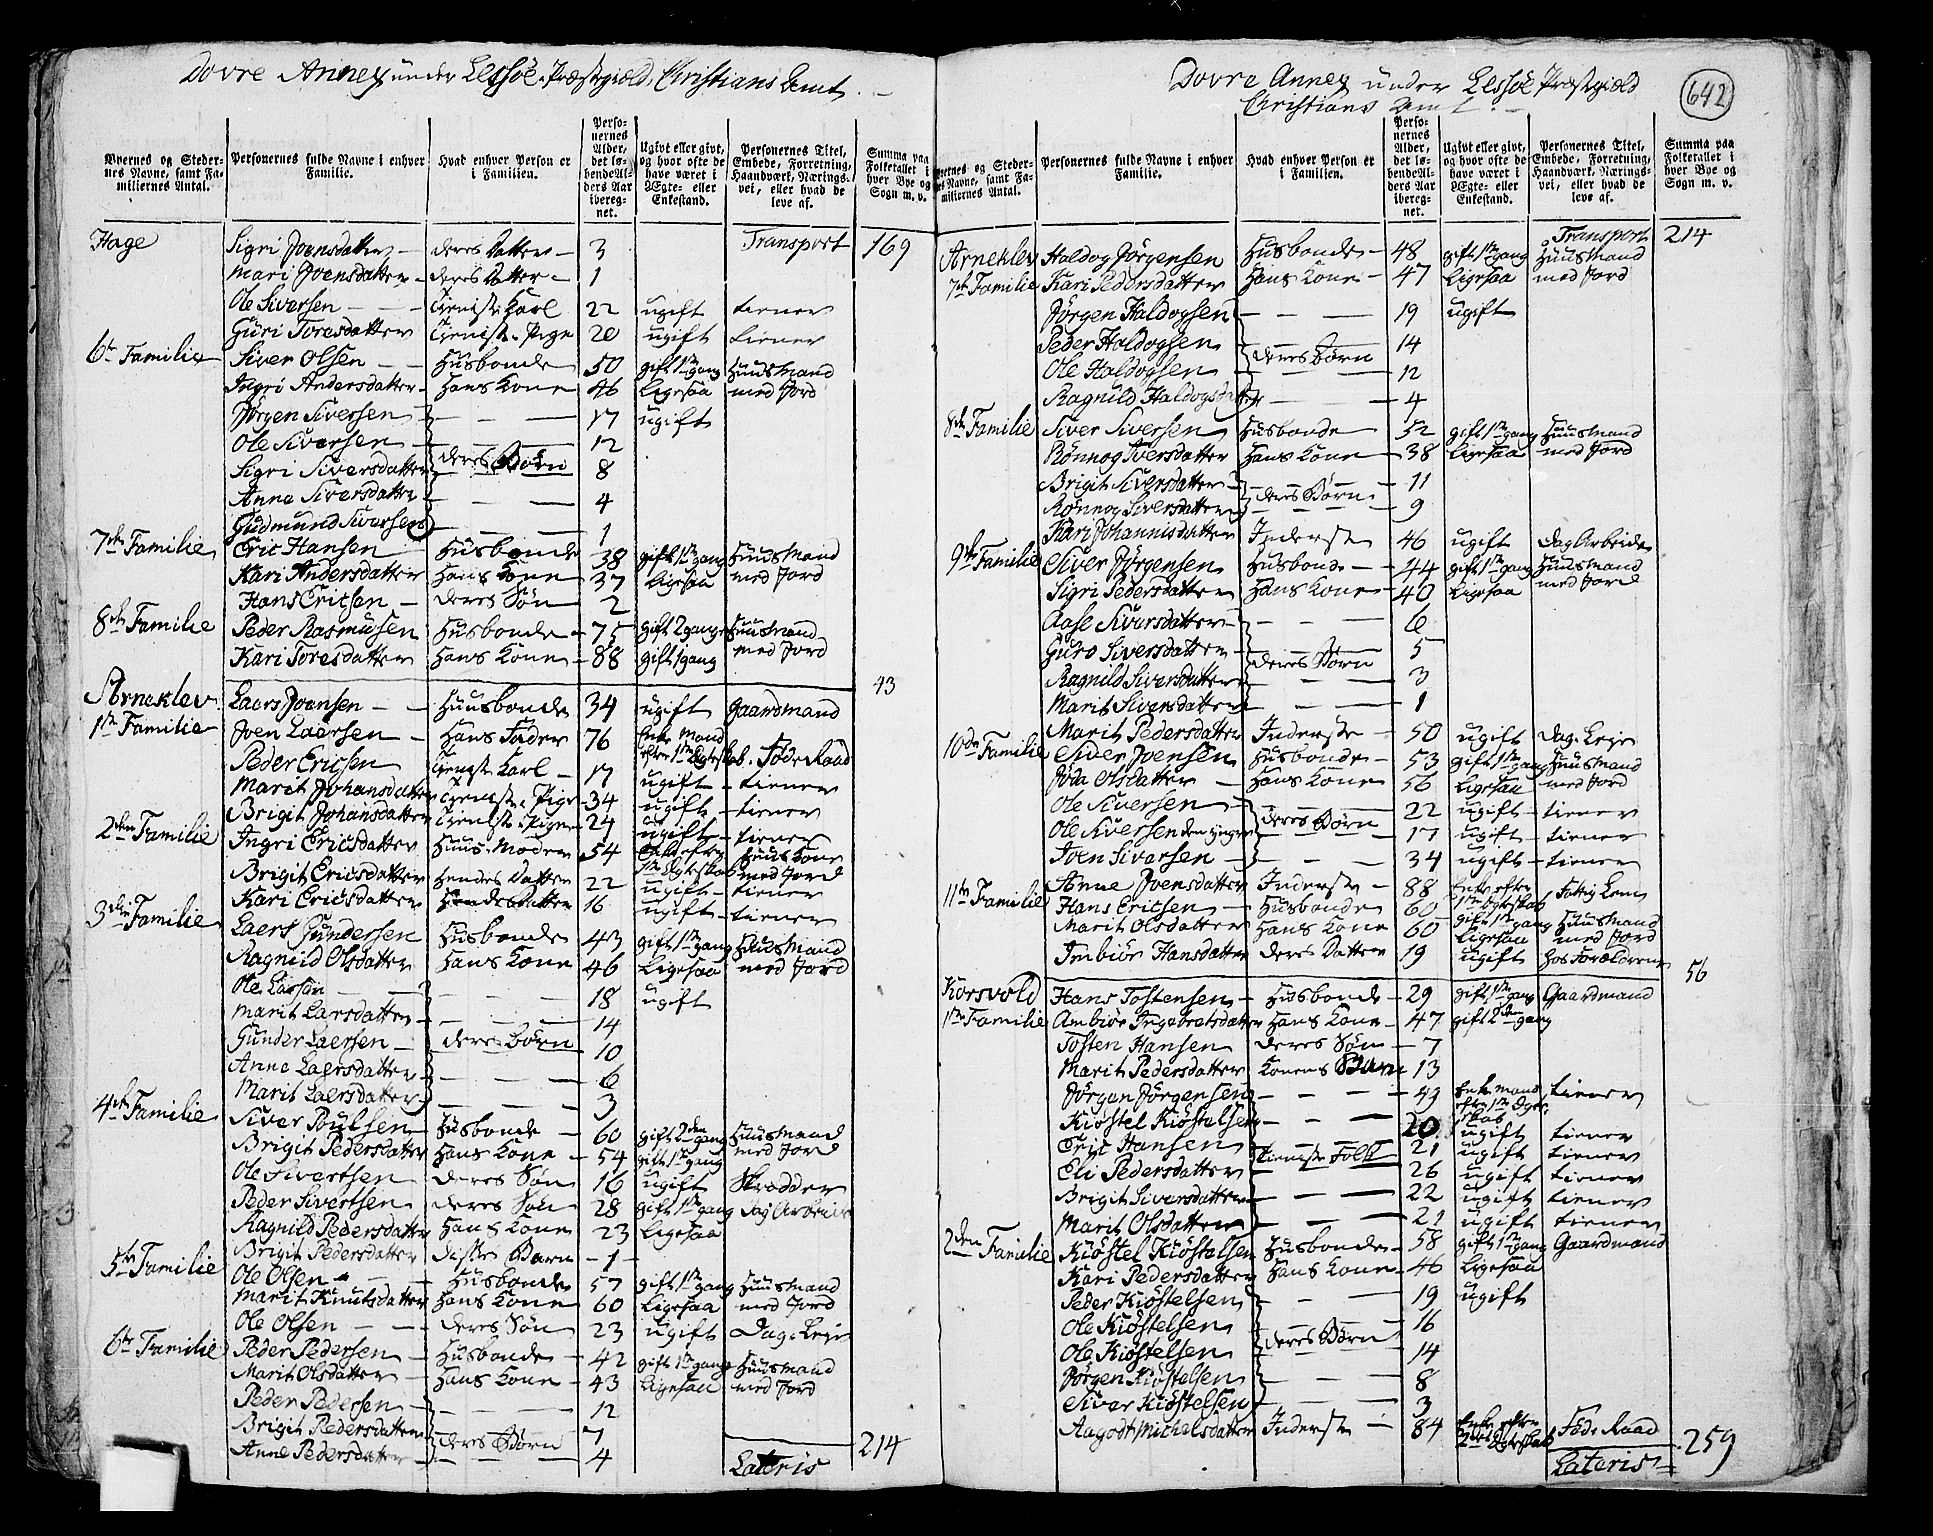 Dovre Annex under Lessøe Præstegield, Christians Amt.
Byernes og Stedernes Navne, samt Familiernes Antal. | Personernes fulde Navne i enhver Familie. | Hvad enhver Person er i Familien. | Personernes Alder, det løbende Alders Aar iberegnet. | Ugivt eller givt, og hvor ofte de have været i Ægte- eller Enkestand. | Personernes Titel, Embede, Forretning, Haandværk, Næringsvei, eller hvad de leve af. | Summa paa Folketallet i hver Bye og Sogn m. v.
Hage Sigri Joensdatter deres Datter 3 Transport 169
Mari Joensdatter deres Datter 1
Ole Siversen Tieniste Karl 22 ugift tiener
Guri Toresdatter Tieniste Pige 20 ugift tiener
6te Familie Siver Olsen Husbonde 50 gift 1ste gang Huusmand
Ingri Andersdatter Hans Kone 46 Ligesaa med Jord
Jørgen Siversen 17 ugift
Ole Siversen 12
Sigri Siversdatter deres Børn 8
Anne Siversdatter 4
Gudmund Siversen 1
7de Familie Eric Hansen Husbonde 38 gift 1ste gang Huusmand
Kari Andersdatter Hans Kone 37 Ligesaa med Jord
Hans Ericsen deres Søn 2
8de Familie Peder Rasmusen Husbonde 75 gift 2 gange Huusmand
Kari Toresdatter Hans Kone 88 gift 1 gang med Jord
43
Arneklev Laers Joensen Huusbonde 34 ugift Gaardmand
1ste Familie Joen Laersen Hans Fader 76 Enke Mand efter 1ste Egteskab Føde Raad
Peder Ericsen Tieniste Karl 17 ugift tiener
Marit Johansdatter Tieniste Pige 34 ugift tiener
Brigit Johansdatter Tieniste Pige 24 ugift tiener
2den Familie Ingri Ericsdatter Huus Moder 54 Enke efter 1ste Egteskab Huus Kone med Jord
Brigit Ericsdatter Hendes Datter 22 ugift tiener
Kari Ericsdatter Hendes Datter 16 ugift tiener
3die Familie Laers Gundersen Husbonde 43 gift 1ste gang Huusmand
Ragnild Olsdatter Hans Kone 46 Ligesaa med Jord
Ole Larsen 18 ugift
Marit Larsdatter 14
Gunder Laersen deres Børn 10
Anne Laersdatter 6
Marit Laersdatter 3
4de Familie Siver Poulsen Husbonde 60 gift 2den gang Huusmand
Brigit Pedersdatter Hans Kone 54 gift 1ste gang med Jord
Ole Sivertsen deres Søn 16 ugift Skredder
Peder Sivertsen deres Søn 28 gift 1ste gang Dag Arbeider
Ragnild Pedersdatter Hans Kone 23 Ligesaa
Brigit Pedersdatter Disses Barn 1
5te Familie Ole Olsen Husbonde 57 gift 1ste gang Huusmand
Marit Knutsdatter Hans Kone 60 Ligesaa med Jord
Ole Olsen deres Søn 23 ugift Dag Leje
6te Familie Peder Pedersen Husbonde 42 gift 1ste gang Huusmand
Marit Olsdatter Hans Kone 43 Ligesaa med Jord
Peder Pedersen 12
Brigit Pedersdatter deres Børn 7
Anne Pedersdatter 4
Lateris 214
Dovre Annex under Lessøe Præstegield
Christians Amt.
642
Byernes og Stedernes Navne, samt Familiernes Antal. | Personernes fulde Navne i enhver Familie. | Hvad enhver Person er i Familien. | Personernes Alder, det løbende Alders Aar iberegnet. | Ugivt eller givt, og hvor ofte de have været i Ægte- eller Enkestand. | Personernes Titel, Embede, Forretning, Haandværk, Næringsvei, eller hvad de leve af. | Summa paa Folketallet i hver Bye og Sogn m. v.
Transport 214
Arneklev Haldog Jørgensen Husbonde 48 gift 1ste gang Huusmand
7de Familie Kari Pedersdatter Hans Kone 47 Ligesaa med Jord
Jørgen Haldogsen 19 ugift
Peder Haldogsen 14
Ole Haldogsen deres Børn 12
Ragnild Haldogsdatter 4
8de Familie Siver Siversen Husbonde 52 gift 1ste gang Huusmand
Rønnog Iversdatter Hans Kone 38 Ligesaa med Jord
Brigit Siversdatter 11
Rønnog Siversdatter deres Børn 9
Kari Johannisdatter Inderste 46 ugift Dag Arbeide
9de Familie Siver Jørgensen Husbonde 44 gift 1ste gang Huusmand
Sigri Pedersdatter Hans Kone 40 Ligesaa med Jord
Aase Siversdatter 6
Guro Siversdatter 5
Ragnild Siversdatter deres Børn 3
Marit Siversdatter 1
Marit Pedersdatter Inderste 50 ugift Dag Leje
10de Familie Siver Joensen Husbonde 53 gift 1ste gang Huusmand
Jøda Olsdatter Hans Kone 56 Ligesaa med Jord
Ole Siversen 22 ugift tiener
Ole Siversen den yngre deres Børn 17 ugift tiener
Joen Siversen 34 ugift tiener
Anne Joensdatter Inderste 88 Enke efter 1ste Egteskab Fattig Lem
11te Familie Hans Ericsen Husbonde 60 gift 1ste gang Huusmand
Marit Olsdatter Hans Kone 60 Ligesaa med Jord
Imbiør Hansdatter deres Datter 19 ugift hos Forældrene
56
Korsvold Hans Tostensen Husbonde 29 gift 1ste gang Gaardmand
1ste Familie Ambiør Ingebretsdatter Hans Kone 47 gift 2den gang
Tosten Hansen deres Søn 7
Marit Pedersdatter Konens Barn 13
Jørgen Jørgensen 49 Enke mand efter 1ste Egteskab tiener
Kiøstel Kiøstelsen 20 ugift tiener
Eric Hansen Tieniste Folk 21 ugift tiener
Eli Pedersdatter 26 ugift tiener
Brigit Siversdatter 22 ugift tiener
Marit Olsdatter 21 ugift tiener
2den Familie Kiøstel Kiøstelsen Husbonde 58 gift 1ste gang Gaardmand
Kari Pedersdatter Hans Kone 46 Ligesaa
Peder Kiøstelsen 19 ugift
Ole Kiøstelsen 16
Ole Kiøstelsen deres Børn 14
Jørgen Kiøstelsen 8
Siver Kiøstelsen 3
Aagodt Michelsdatter Inderste 84 Enke efter 2det Egteskab Føde Raad
Lateris 259